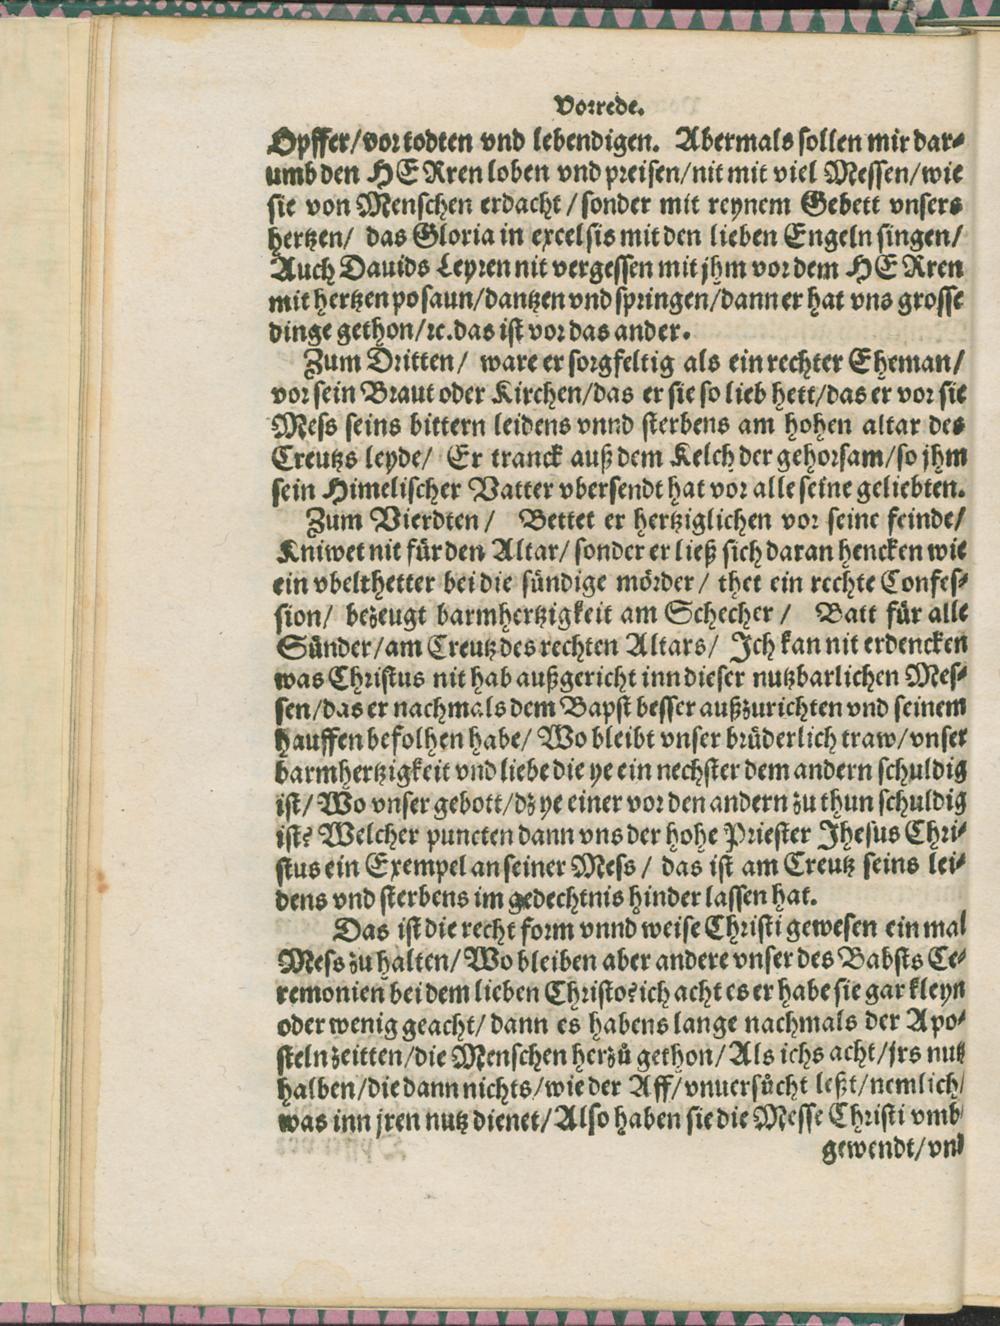 Vorrede.
Opffer/vor todten vnd lebendigen. Abermals sollen mir dar⸗
umb den HERren loben vnd preisen/nit mit viel Messen/wie
sie von Menschen erdacht/sonder mit reynem Gebett vnsers
hertzen/ das Gloria in excelsis mit den lieben Engeln singen/
Auch Dauids Leyren nit vergessen mit jhm vor dem HERren
mit hertzen posaun/dantzen vnd springen/dann er hat vns grosse
dinge gethon/ꝛc. das ist vor das ander.
Zum Dritten/ ware er sorgfeltig als ein rechter Eheman/
vor sein Braut oder Kirchen/das er sie so lieb hett/das er vor sie
Mess seins bittern leidens vnnd sterbens am hohen altar des
Creutzs leyde/ Er tranck auß dem Kelch der gehorsam/so jhm
sein Himelischer Vatter vbersendt hat vor alle seine geliebten.
Zum Vierdten/ Bettet er hertziglichen vor seine feinde/
Kniwet nit für den Altar/ sonder er ließ sich daran hencken wie
ein vbelthetter bei die sündige mörder/ thet ein rechte Confes⸗
sion/ bezeugt barmhertzigkeit am Schecher/ Batt für alle
Sünder/am Creutz des rechten Altars/ Ich kan nit erdencken
was Christus nit hab außgericht inn dieser nutzbarlichen Mes⸗
sen/das er nachmals dem Bapst besser außzurichten vnd seinem
hauffen befolhen habe/ Wo bleibt vnser brüderlich traw/vnser
barmhertzigkeit vnd liebe die ye ein nechster dem andern schuldig
ist/ Wo vnser gebott/dz ye einer vor den andern zu thun schuldig
ist? Welcher puncten dann vns der hohe Priester Jhesus Chri⸗
stus ein Exempel an seiner Mess/ das ist am Creutz seins lei⸗
dens vnd sterbens im gedechtnis hinder lassen hat.
Das ist die recht form vnnd weise Christi gewesen ein mal
Mess zu halten/Wo bleiben aber andere vnser des Babsts Ce⸗
remonien bei dem lieben Christo? ich acht es er habe sie gar kleyn
oder wenig geacht/ dann es habens lange nachmals der Apo⸗
steln zeitten/die Menschen herzů gethon/Als ichs acht/jrs nutz
halben/die dann nichts/wie der Aff/vnuersůcht leßt/nemlich/
was inn jren nutz dienet/Also haben sie die Messe Christi vmb
gewendt/vnd